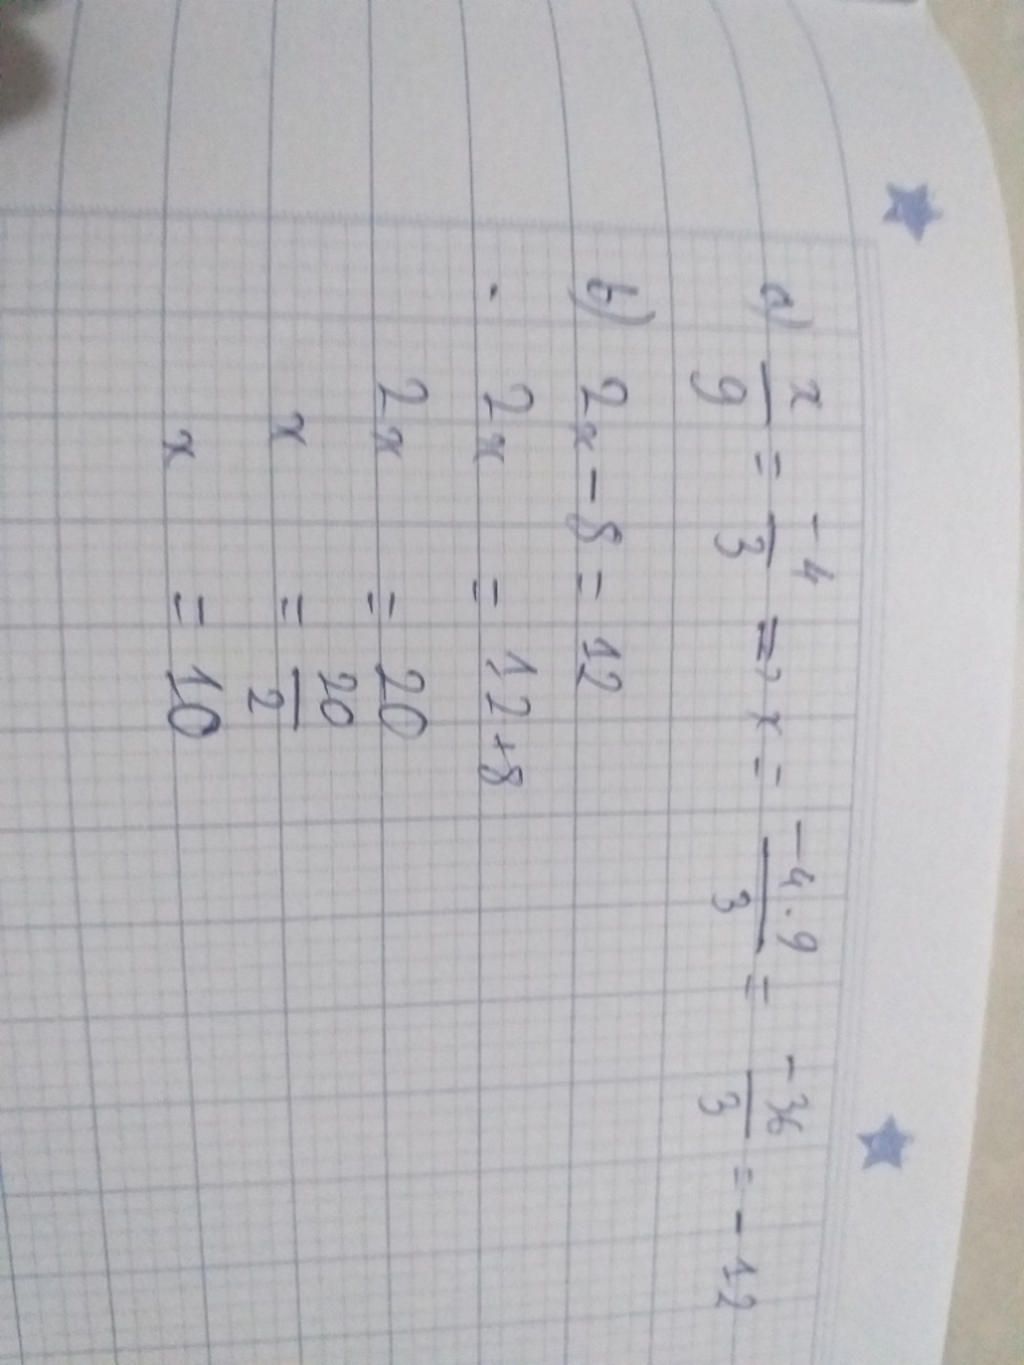 a) x/9 = -4/3 => x = -4.9/3 = -36/3 = -12
b) 2x - 8 = 12
2x = 12+8
2x = 20
x = 20/2
x = 10